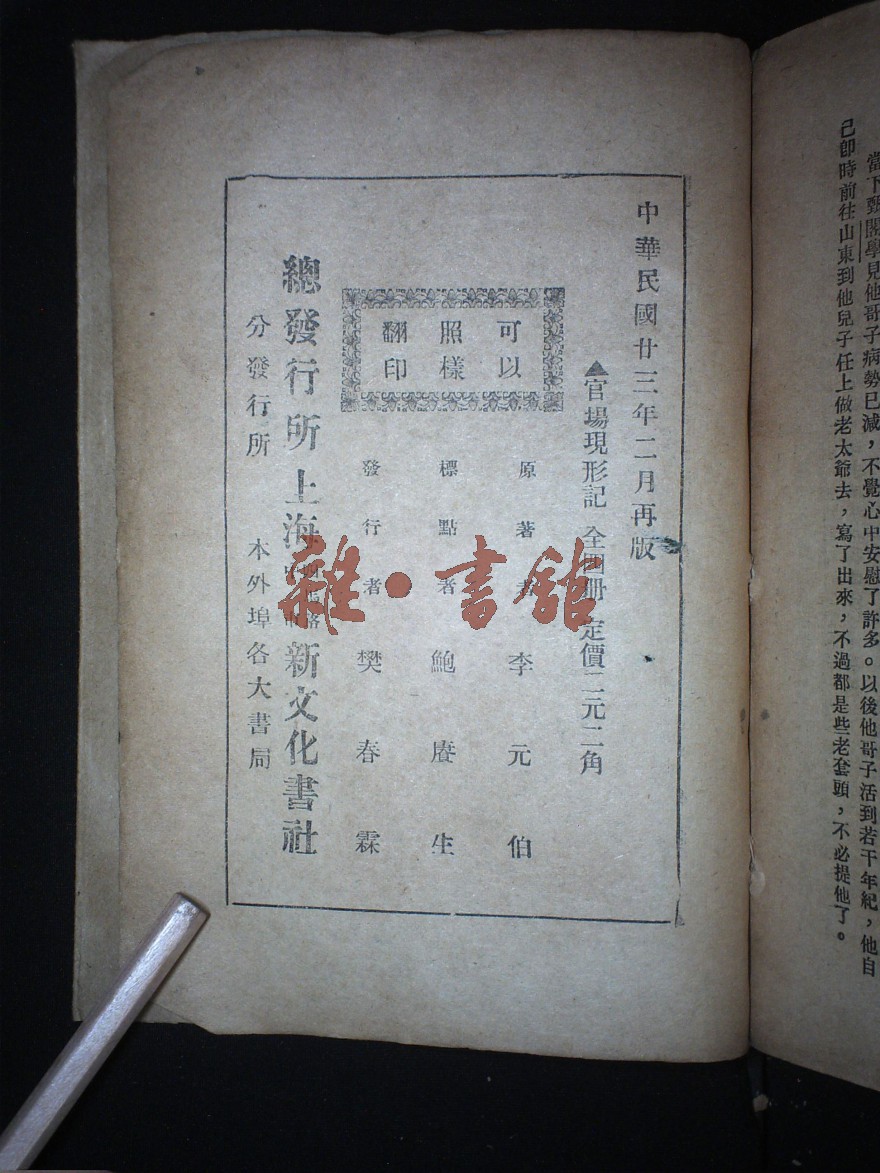 當下甄閣學見他哥子病勢已減，不覺心中安慰了許多。以後他哥子活到若干年紀，他自
己卽時前往山東到他兒子任上做老太爺去，寫了出來，不過都是些老套頭，不必提他了。
中華民國廿三年二月再版
▲官場現形記 全四册 定價二元二角
可以
照樣
翻印
原著者 李元伯
標點者 鮑賡生
發行者 樊春霖
總發行所 上海 新文化書社
分發行所 本外埠各大書局
雜·書館